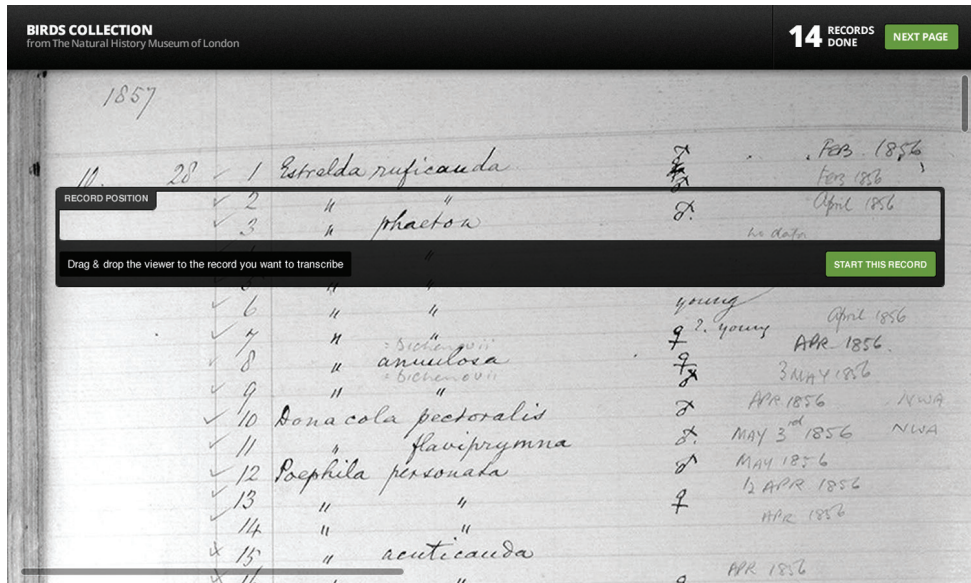 BIRDS COLLECTION
from The Natural History Museum of London
14 RECORDS DONE
NEXT PAGE
1857
10. 28 1 Estrelda ruficauda ♂ . . FEB 1856
♀ FEB 1856
RECORD POSITION
2 " " ♂ April 1856
3 " phaeton ♂.
no data
"
Drag & drop the viewer to the record you want to transcribe
START THIS RECORD
6 " " young April 1856
7 " " ♀ ?. young APR 1856.
= bichenovii
8 " annulosa ♀ 3 MAY 1856
= bichenovii
9 " " ♂ APR 1856 NWA
10 Donacola pectoralis ♂ MAY 3rd 1856 NWA
11 " flaviprymna ♂. MAY 1856
12 Poephila personata ♂ 12 APR 1856
13 " " ♀ APR 1856
14 " "
15 " acuticauda
APR 1856